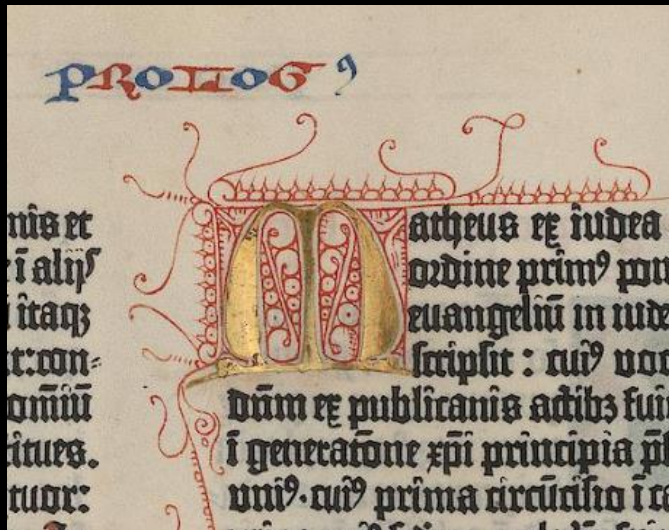 PROLOGꝰ
mis et
e ī alijs
i itaqꝫ
t:con-
omīū
itues.
tuor:
Matheus ex iudea
ordine primꝰ pon
euangeliū in iude
scripsit : cuiꝰ voc
dūm ex publicanis actibꝫ fuit
ī generatone xp̄i principia p̄
vniꝰ. cuiꝰ prima circūcisio ī c